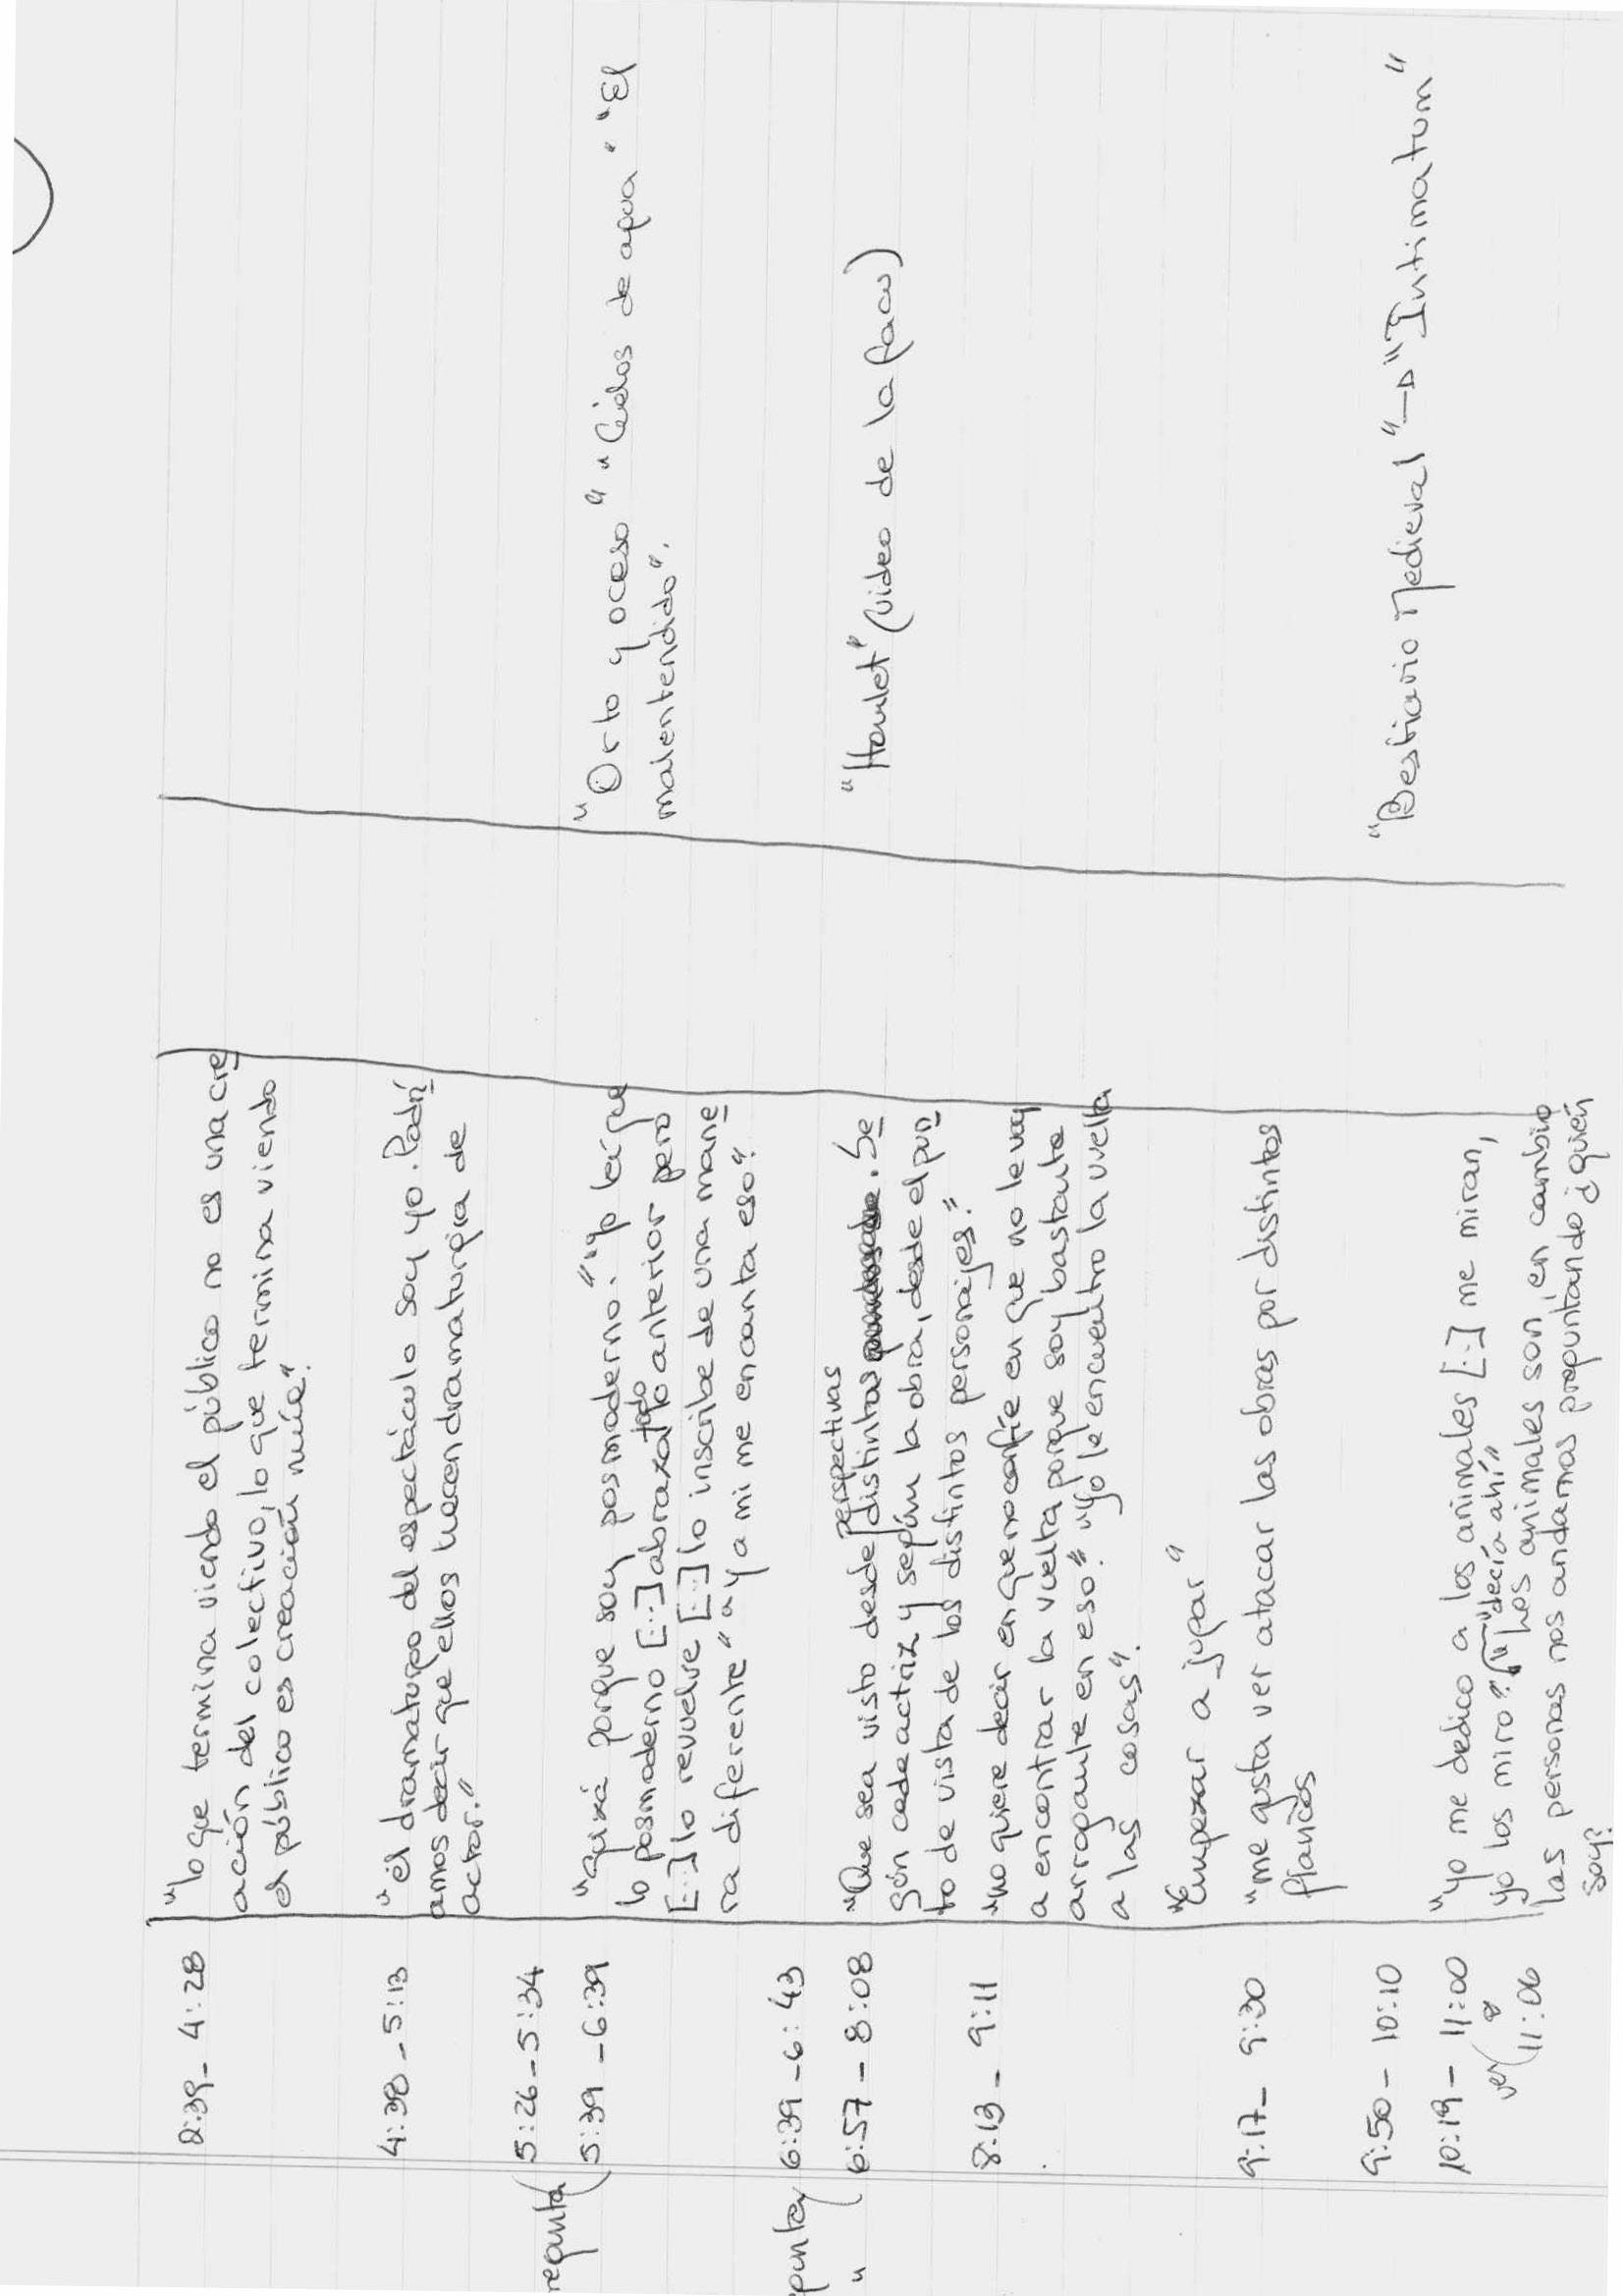 2:39 - 4:28 "lo que termina viendo el público no es una cre
ación del colectivo, lo que termina viendo
el público es creación mía".
4:38 - 5:13 "el dramaturgo del espectáculo soy yo. Podrí
amos decir que ellos hacen dramaturgia de
actor."
regunta (5:26 - 5:34
5:39 - 6:39 "quizá porque soy posmoderno". "yo leí que "Orto y ocaso" "Cielos de agua" "El
lo posmoderno [...] abraza todo lo anterior pero malentendido".
[...] lo revuelve [...] lo inscribe de una mane
ra diferente" "y a mi me encanta eso".
gunta) 6:39 - 6:43
perspectivas
" (6:57 - 8:08 "Que sea visto desde distintas . Se "Hamlet" (video de la facu)
gún cada actriz y según la obra, desde el pun
to de vista de los distintos personajes."
8:13 - 9:11 "no quiere decir en que no confíe en que no le voy
a encontrar la vuelta porque soy bastante
arrogante en eso." "yo le encuentro la vuelta
a las cosas".
"Empezar a jugar"
9:17 - 9:30 "me gusta ver atacar las obras por distintos
flancos
9:50 - 10:10 "Bestiario Medieval" → "Intimatum"
10:19 - 11:00 "yo me dedico a los animales [...] me miran,
ver ( a yo los miro". "decía ahí"
11:06 "los animales son, en cambio
las personas nos andamos preguntando ¿quién
soy?